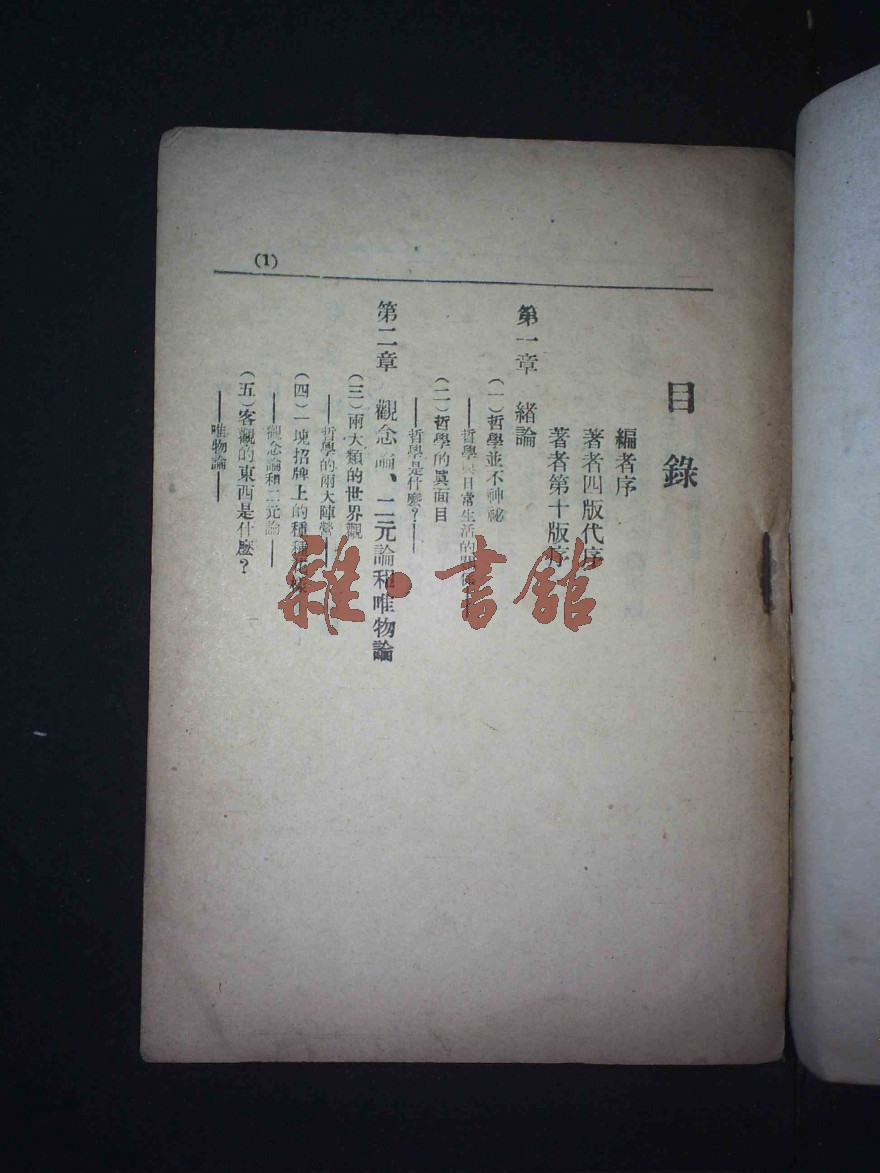 (1)
目錄
編者序
著者四版代序
著者第十版序
第一章 緒論
(一)哲學並不神祕
——哲學與日常生活的關係——
(二)哲學的眞面目
——哲學是什麼?——
第二章 觀念論、二元論和唯物論
(三)兩大類的世界觀
——哲學的兩大陣營——
(四)一塊招牌上的種種花樣
——觀念論和二元論——
(五)客觀的東西是什麼?
——唯物論——
雜·書館